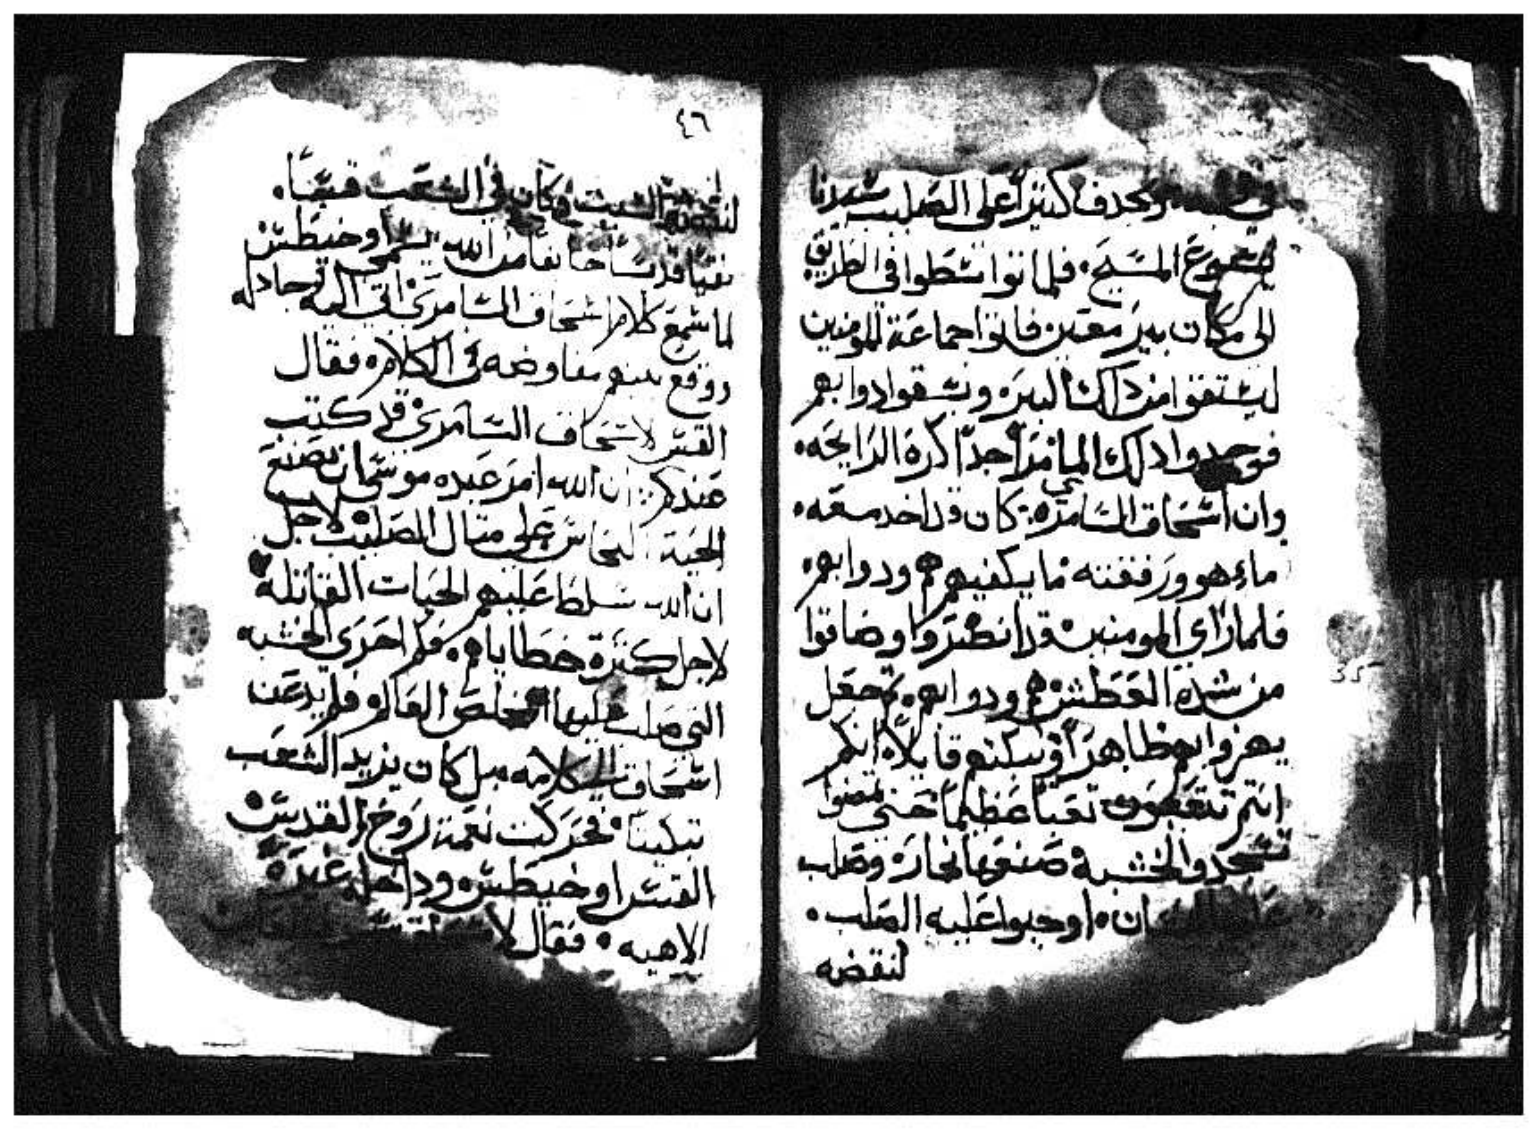 ويجدف كثيراً على الصليب سيدنا
يسوع المسيح. فلما توا سطوا في الطريق
الى مكان بير معين فاتوا جماعة المومنين
ليستقوا من داك البيره ويسقوا دوابهم
فوجدوا دلك الما مراً جداً كره الرايحه.
وان اسحاق السامري كان قد اخد معه.
ماء هو ورفقته ما يكفيهم هم ودوابهم.
فلما راي المومنين قد انضروا وضاقوا
من شدة العطش هم ودوابهم. تجعل
يهزوا بهم ظاهراً ويبكتهم قايلاً انكم
انتم تتعبون تعباً عظيماً حتى تمضوا
تسجدوا لخشبة صنعوها نجاره وصلب
اوجبوا عليه الصلب.
لنقضه
٤٦
لنقضه السبت وكان في الشعب قسيساً.
نقياً قديساً خايفاً من الله يسمى اوخيطس
لما سمع كلام اسحاق السامري اتى اليه وجادله
ووقع بينهم مفاوضه في الكلام. فقال
القس لاسحاق السامري قد كتب
عندكم ان الله امر عبده موسى ان يصنع
الحية النحاس على متال الصليب لاجل
ان الله سلط عليهم الحيات القاتلة
لاجل كترة خطاياهم. فكم احرى الخشبه
التي صلب عليها مخلص العالم فلم يدعن
اسحاق لكلامه بل كان يزيد الشعب
تبكيتاً. فتحركت نعمة روح القدس
القس اوخيطس. وداخله غيرة
الاهيه. فقال